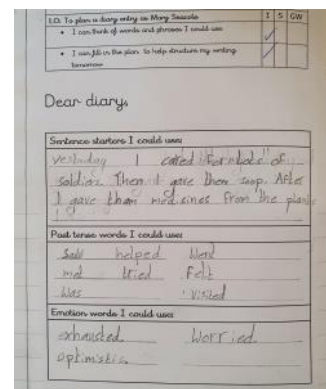 L.O. To plan a diary entry as Mary Seacole I S GW
• I can think of words and phrases I could use
• I can fill in the plan to help structure my writing
tomorrow
Dear diary,
Sentence starters I could use:
yesterday I cared for lots of
soldiers. Then I gave them soup. After
I gave them medicines from the plants
Past tense words I could use:
Saw helped Went
met tried Felt
Was visited
Emotion words I could use:
exhausted Worried
optimistic